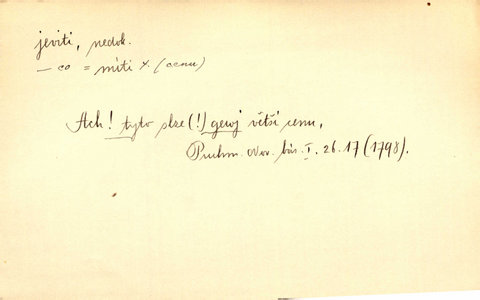 jeviti, nedok.
— co = míti x. (cenu)
Ach! tyto slze (!) gewj větší cenu,
Puchm. Nov. bás. I. 26. 17 (1798).